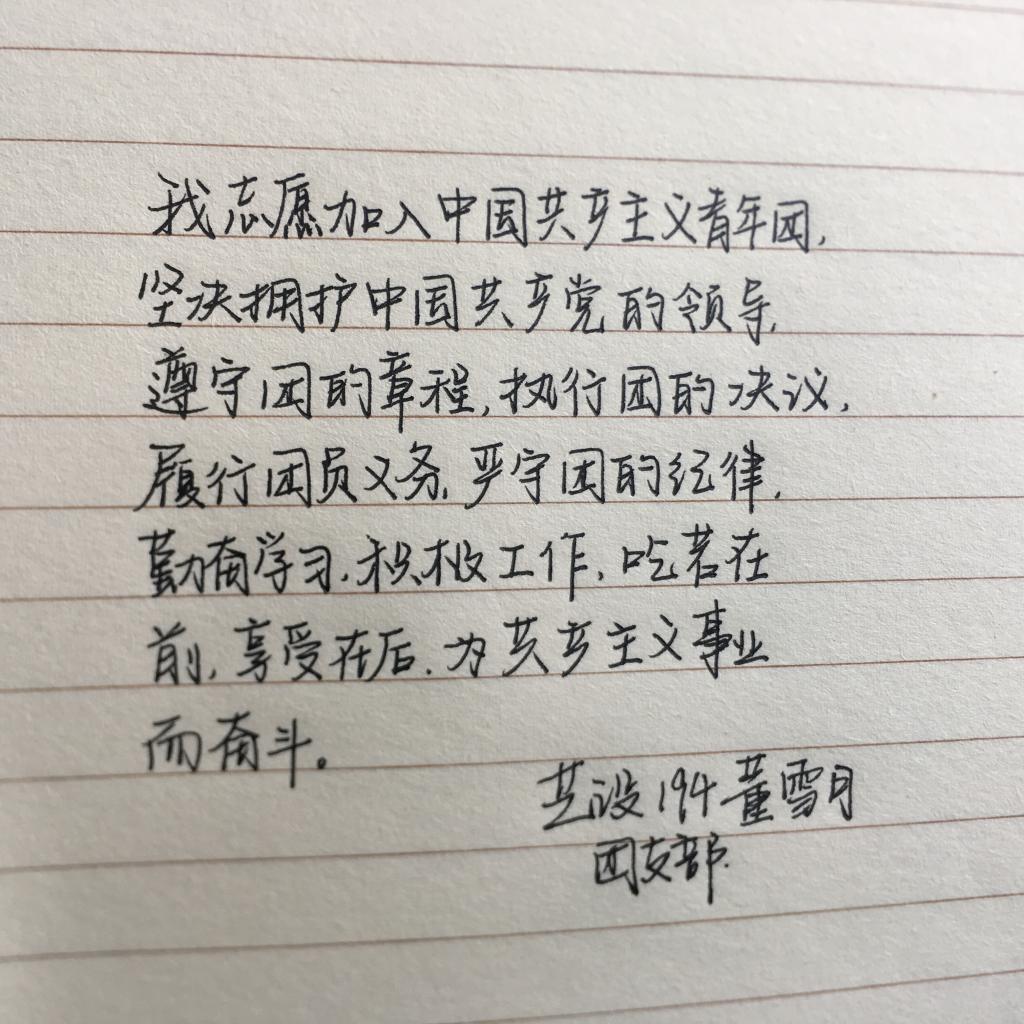 我志愿加入中国共产主义青年团,
坚决拥护中国共产党的领导,
遵守团的章程,执行团的决议,
履行团员义务,严守团的纪律,
勤奋学习,积极工作,吃苦在
前,享受在后,为共产主义事业
而奋斗。
艺设194董雪月
团支部.